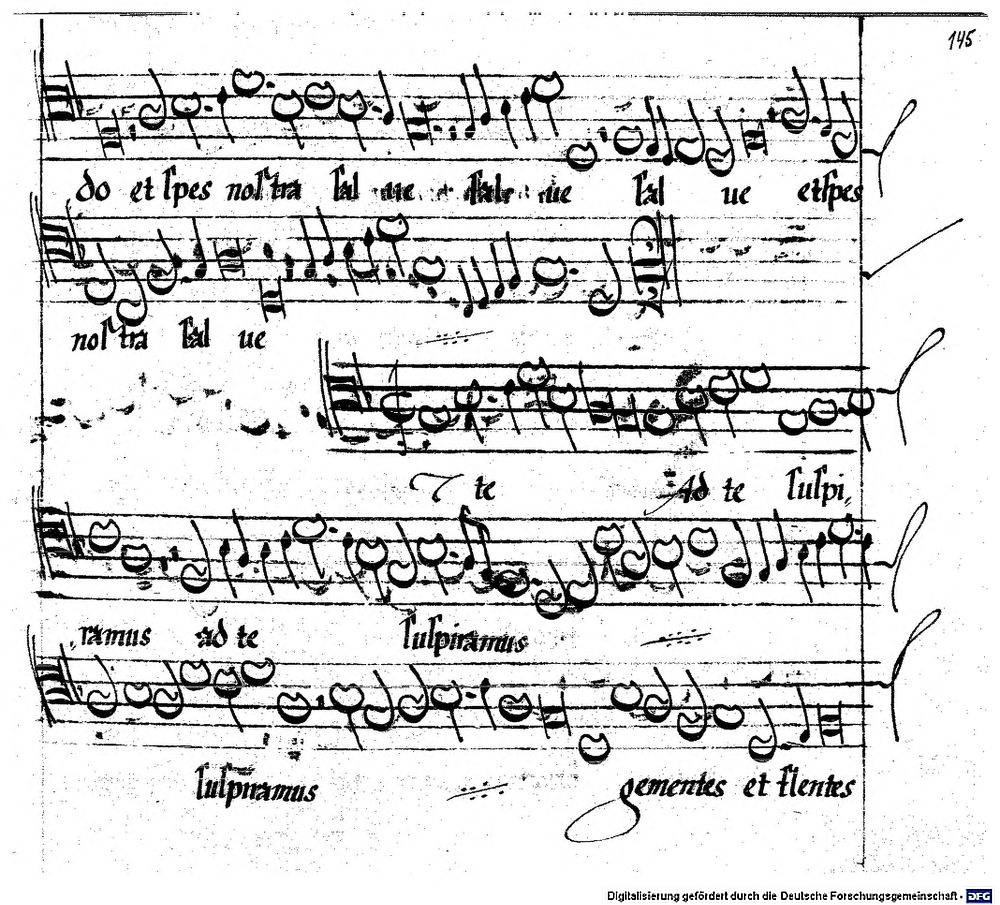 145
do et ſpes noſtra ſal ue ſalue ſal ue et ſpes
noſtra ſal ue
te Ad te ſuſpi,
ramus ad te ſuſpiramus
ſuſpiramus gementes et flentes
Digitalisierung gefördert durch die Deutsche Forschungsgemeinschaft - DFG